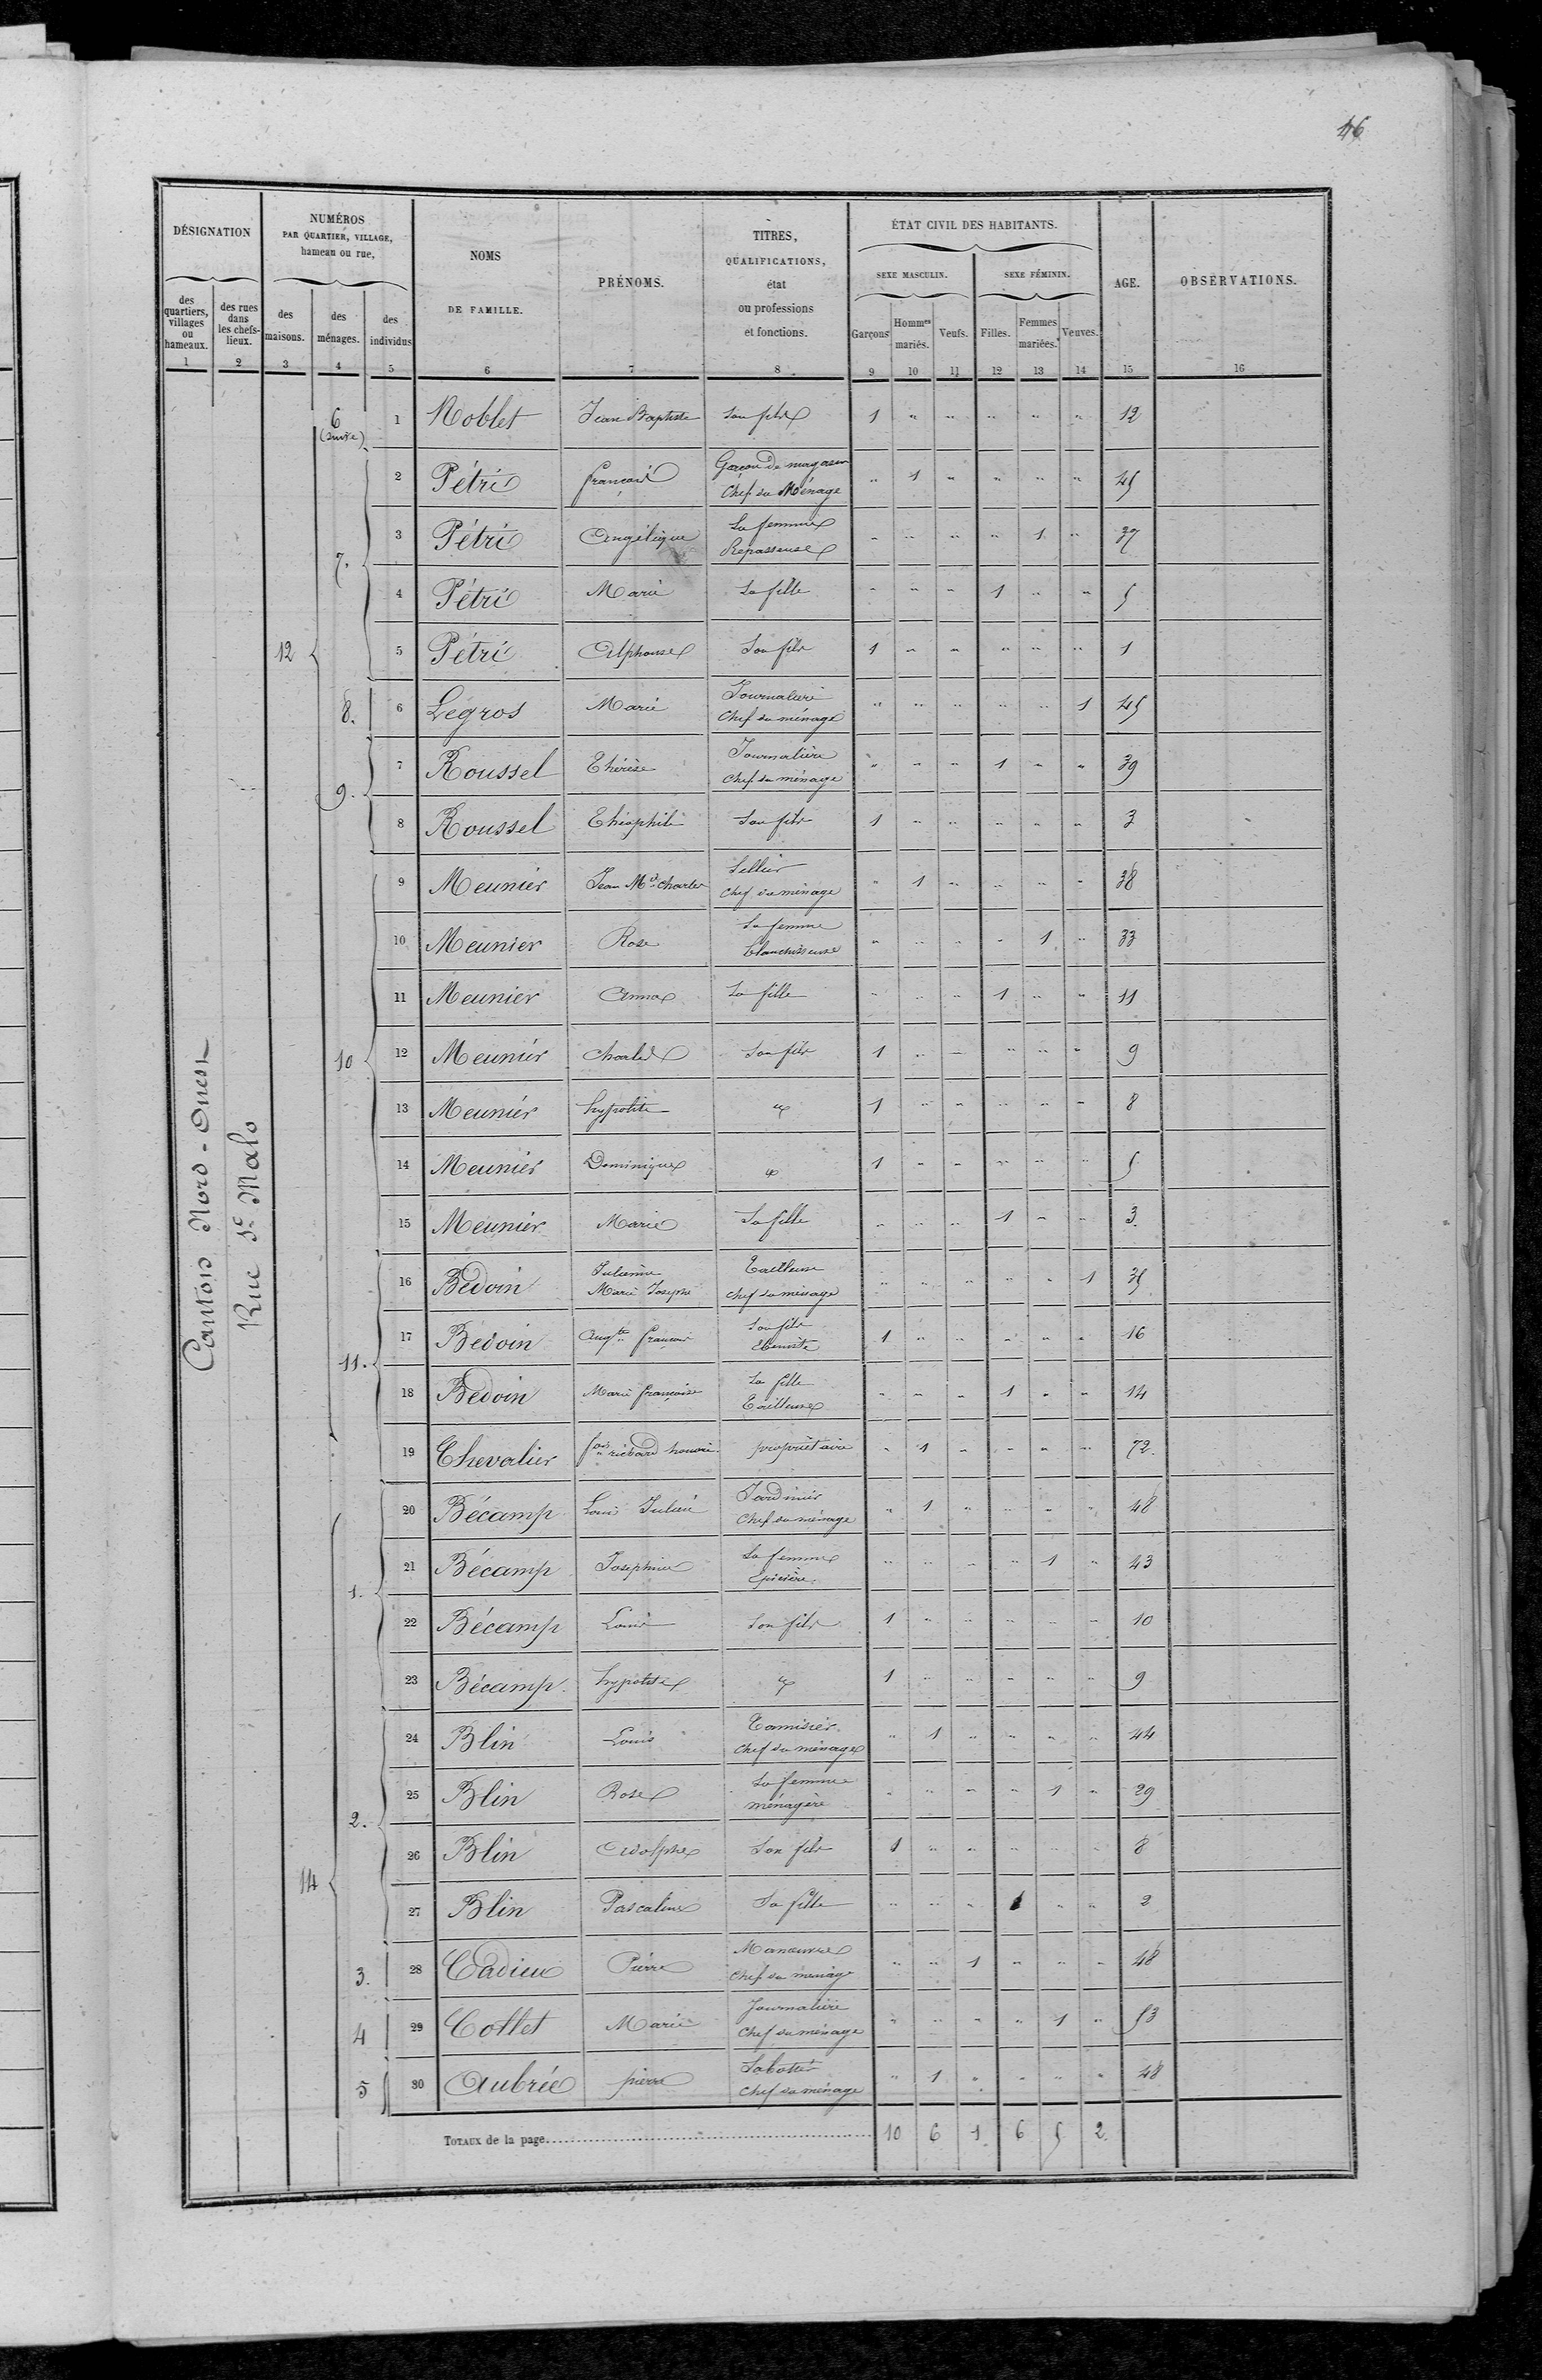 46
DÉSIGNATION
NUMÉROS
PAR QUARTIER, VILLAGE,
hameau ou rue,
NOMS
DE FAMILLE.
PRÉNOMS.
TITRES,
QUALIFICATIONS,
état
ou professions
et fonctions.
ÉTAT CIVIL DES HABITANTS.
SEXE MASCULIN.
SEXE FÉMININ.
AGE.
OBSERVATIONS.
des quartiers, villages ou hameaux.
des rues dans les chefs-lieux.
des maisons.
des ménages.
des individus
Garçons
Hommes mariés.
Veufs.
Filles.
Femmes mariées.
Veuves.
1 2 3 4 5 6 7 8 9 10 11 12 13 14 15 16
Canton Nord-Ouest
Rue St Malo
12
6 (suite) 1 Noblet Jean Baptiste Son fils 1 " " " " " 12
7. 2 Pétri françois Garçon de magasin Chef du Ménage " 1 " " " " 45
3 Pétri Angélique Sa femme Repasseuse " " " " 1 " 37
4 Pétri Marie Sa fille " " " 1 " " 5
5 Pétri Alphonse Son fils 1 " " " " " 1
8. 6 Legros Marie Journalière Chef du ménage " " " " " 1 45
9. 7 Roussel Thérèse Journalière Chef du ménage " " " 1 " " 39
8 Roussel Théophile Son fils 1 " " " " " 3
10 9 Meunier Jean Md Charles Sellier Chef du ménage " 1 " " " " 38
10 Meunier Rose Sa femme blanchisseuse " " " " 1 " 33
11 Meunier Anna Sa fille " " " 1 " " 11
12 Meunier Charles Son fils 1 " " " " " 9
13 Meunier hypolite " 1 " " " " " 8
14 Meunier Dominique " 1 " " " " " 5
15 Meunier Marie Sa fille " " " 1 " " 3
11. 16 Bedoin Julienne Marie Josephe Tailleuse chef du ménage " " " " " 1 35
17 Bedoin Augte françois Son fils Ebeniste 1 " " " " " 16
18 Bedoin Marie françoise Sa fille Tailleuse " " " 1 " " 14
19 Chevalier fois richard honoré propriétaire " 1 " " " " 72
14
1. 20 Bécamp Louis Julien Jardinier Chef du ménage " 1 " " " " 48
21 Bécamp Josephine Sa femme Epicière " " " " 1 " 43
22 Bécamp Louis Son fils 1 " " " " " 10
23 Bécamp hypolite " 1 " " " " " 9
2. 24 Blin Louis Tamisier Chef du ménage " 1 " " " " 44
25 Blin Rose Sa femme ménagère " " " " 1 " 29
26 Blin Adolphe Son fils 1 " " " " " 8
27 Blin Pascaline Sa fille " " " 1 " " 2
3. 28 Cadieu Pierre Manoeuvre Chef du ménage " " 1 " " " 48
4 29 Collet Marie Journalière Chef du ménage " " " " 1 " 53
5 30 Aubrée pierre Sabotier Chef du ménage " 1 " " " " 48
TOTAUX de la page 10 6 1 6 5 2